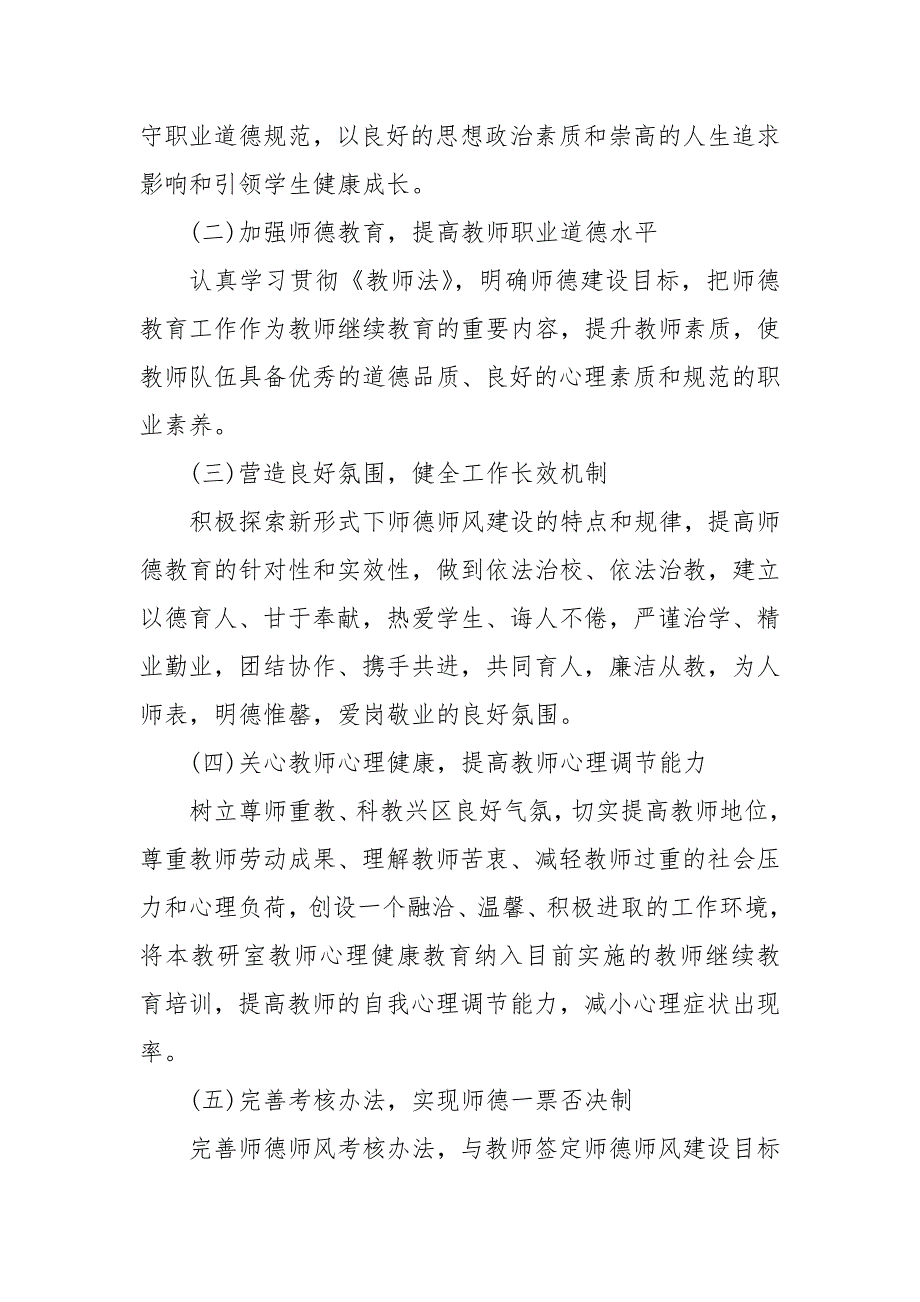 守职业道德规范，以良好的思想政治素质和崇高的人生追求
影响和引领学生健康成长。
(二)加强师德教育，提高教师职业道德水平
认真学习贯彻《教师法》，明确师德建设目标，把师德
教育工作作为教师继续教育的重要内容，提升教师素质，使
教师队伍具备优秀的道德品质、良好的心理素质和规范的职
业素养。
(三)营造良好氛围，健全工作长效机制
积极探索新形式下师德师风建设的特点和规律，提高师
德教育的针对性和实效性，做到依法治校、依法治教，建立
以德育人、甘于奉献，热爱学生、诲人不倦，严谨治学、精
业勤业，团结协作、携手共进，共同育人，廉洁从教，为人
师表，明德惟馨，爱岗敬业的良好氛围。
(四)关心教师心理健康，提高教师心理调节能力
树立尊师重教、科教兴区良好气氛，切实提高教师地位，
尊重教师劳动成果、理解教师苦衷、减轻教师过重的社会压
力和心理负荷，创设一个融洽、温馨、积极进取的工作环境，
将本教研室教师心理健康教育纳入目前实施的教师继续教
育培训，提高教师的自我心理调节能力，减小心理症状出现
率。
(五)完善考核办法，实现师德一票否决制
完善师德师风考核办法，与教师签定师德师风建设目标